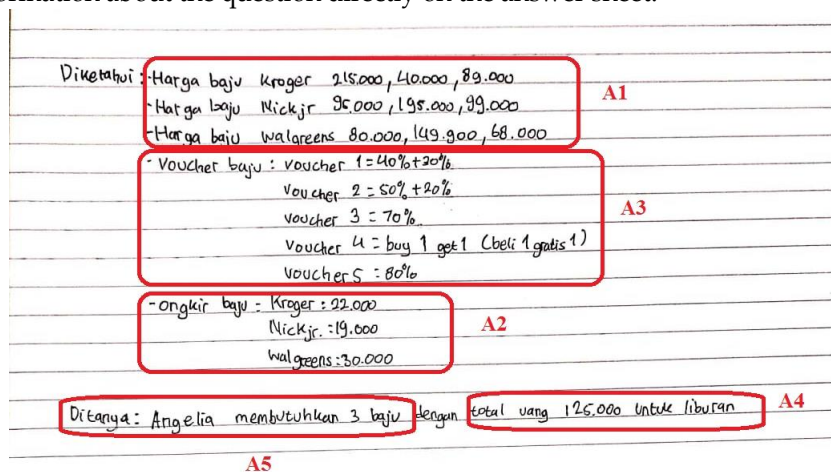 ormation about the question directly on the answer sheet.
Diketahui : - Harga baju Kroger 215.000, 40.000, 89.000
A1
- Harga baju Nickjr 95.000, 195.000, 99.000
- Harga baju Walgreens 80.000, 149.900, 68.000
- Voucher baju : voucher 1 = 40% + 20%
voucher 2 = 50% + 20%
A3
voucher 3 = 70%
voucher 4 = buy 1 get 1 (beli 1 gratis 1)
voucher 5 = 80%
- ongkir baju = Kroger : 22.000
A2
Nickjr. : 19.000
walgreens : 30.000
Ditanya : Angelia membutuhkan 3 baju dengan total uang 125.000 untuk liburan
A4
A5